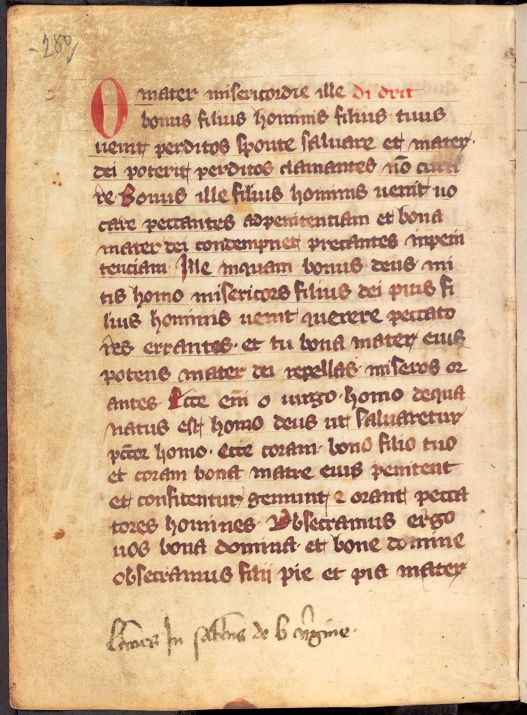 -280,
O mater misericordie ille di drit
bonus filius hominis filius tuus
uenit perditos sponte saluare et mater
dei poterit perditos clamantes nõ cura
re Bonus ille filius hominis uenit uo
care peccantes adpenitentiam et bona
mater dei contempnet precantes inpeni
tenciam Ille inquam bonus deus mi
tis homo misericors filius dei pius fi
lius hominis uenit querere peccato
res errantes et tu bona mater eius
potens mater dei repellas miseros or
antes Ecce em̃ o uirgo homo dequa
natus est homo deus ut saluaretur
pcc̃tor homo ecce coram bono filio tuo
et coram bona matre eius penitent
et confitentur gemunt ⁊ orant pecca
tores homines Obsecramus ergo
uos bona domina et bone domine
obsecramus filii pie et pia mater
In de b